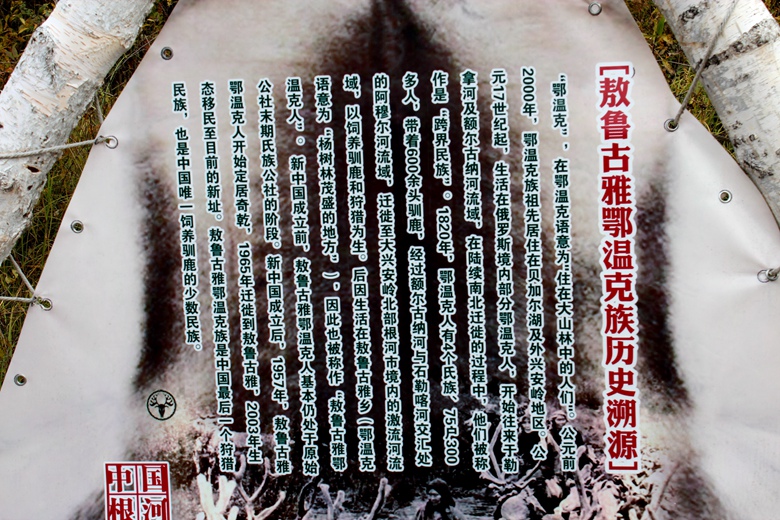 [敖鲁古雅鄂温克族历史溯源]
“鄂温克”，在鄂温克语意为“住在大山林中的人们”。公元前
2000年，鄂温克族祖先居住在贝加尔湖及外兴安岭地区。公
元17世纪起，生活在俄罗斯境内部分鄂温克人，开始往来于勒
拿河及额尔古纳河流域，在陆续南北迁徙的过程中，他们被称
作是“跨界民族”。1820年，鄂温克人有大个氏族，75户300
多人，带着600余头驯鹿，经过额尔古纳河与石勒喀河交汇处
的阿穆尔河流域，迁徙至大兴安岭北部根河市境内的激流河流
域，以饲养驯鹿和狩猎为生。后因生活在敖鲁古雅乡（鄂温克
语意为“杨树林茂盛的地方。），因此也被称作“敖鲁古雅鄂
温克人”。新中国成立前，敖鲁古雅鄂温克人基本仍处于原始
公社末期氏族公社的阶段。新中国成立后，1957年，敖鲁古雅
鄂温克人开始定居奇乾，1965年迁徙到敖鲁古雅，2003年生
态移民至目前的新址。敖鲁古雅鄂温克族是中国最后一个狩猎
民族，也是中国唯一饲养驯鹿的少数民族。
中国
根河